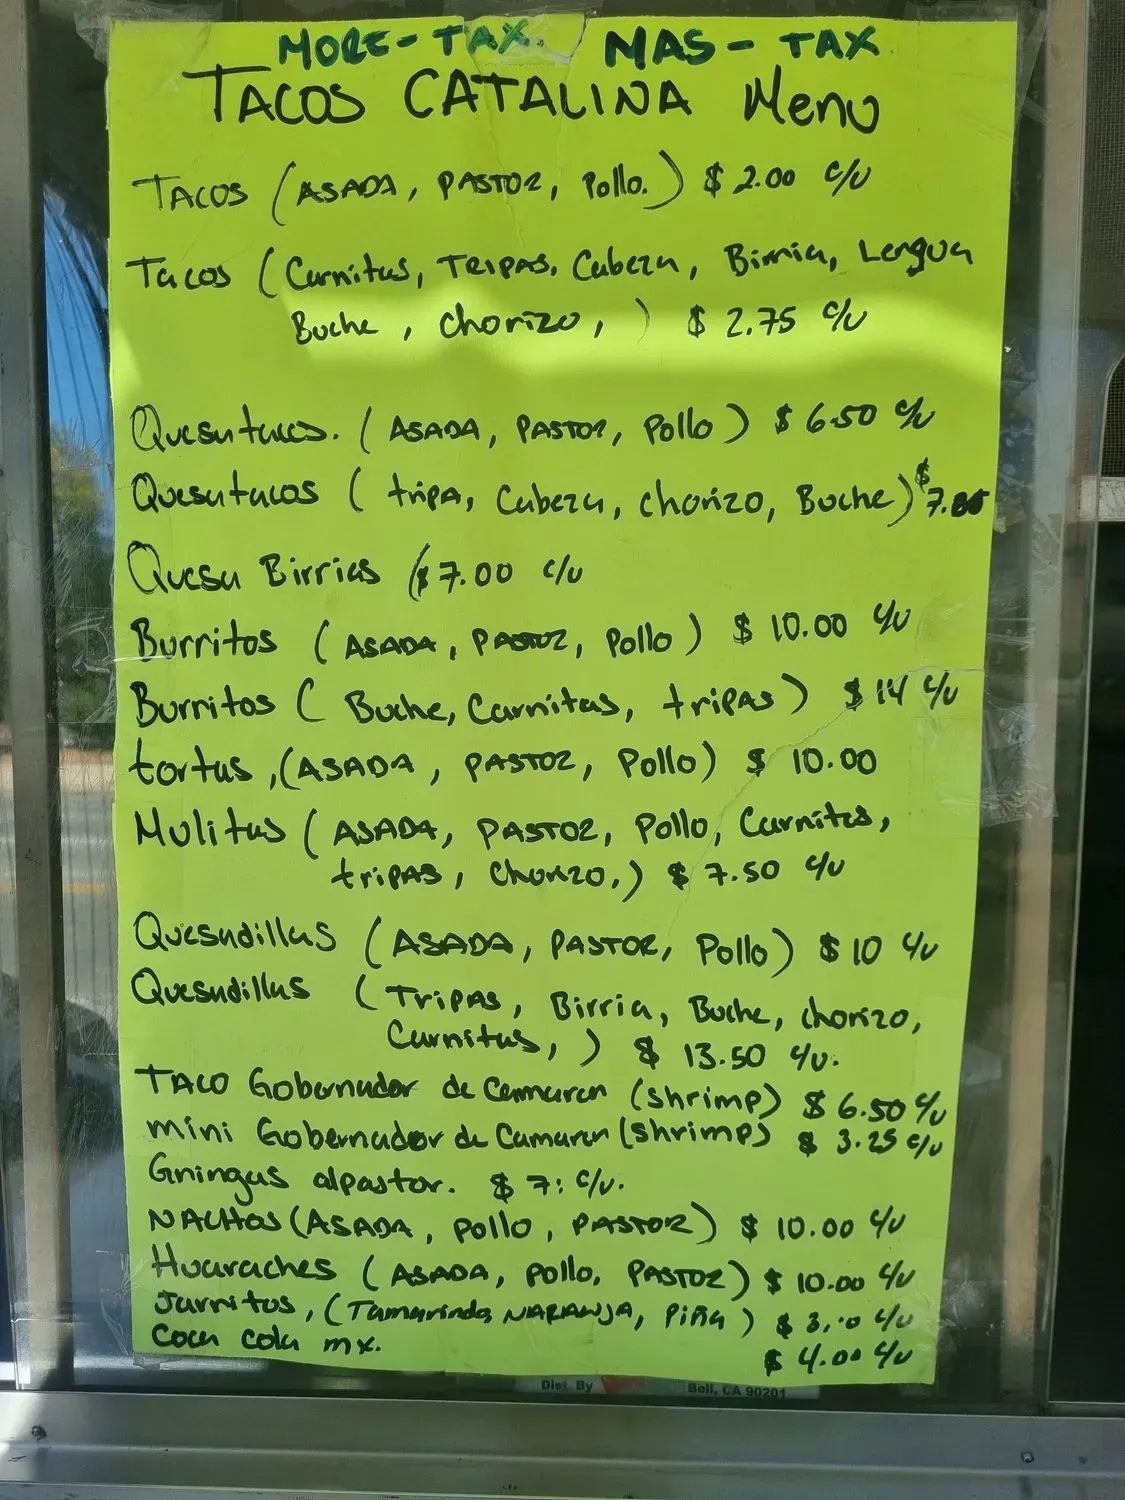 MORE-TAX. MAS-TAX
TACOS CATALINA Menu
TACOS (ASADA, PASTOR, Pollo.) $ 2.00 c/u
Tacos (Carnitas, TRIPAS, Cabeza, Birria, Lengua
Buche, chorizo, ) $ 2.75 c/u
Quesatacos. (ASADA, PASTOR, Pollo) $ 6.50 c/u
Quesatacos (tripa, Cabeza, chorizo, Buche) $
Quesa Birrias ($7.00 c/u
Burritos (ASADA, PASTOR, Pollo) $ 10.00 c/u
Burritos (Buche, Carnitas, tripas) $ 14 c/u
tortas, (ASADA, PASTOR, Pollo) $ 10.00
Mulitas (ASADA, PASTOR, Pollo, Carnitas,
tripas, Chorizo,) $ 7.50 c/u
Quesadillas (ASADA, PASTOR, Pollo) $ 10 c/u
Quesadillas (Tripas, Birria, Buche, chorizo,
Carnitas, ) $ 13.50 c/u.
TACO Gobernador de Camaron (shrimp) $ 6.50 c/u
mini Gobernador de Camaron (shrimp) $ 3.25 c/u
Gringas alpastor. $ 7: c/u.
NACHOS (ASADA, pollo, PASTOR) $ 10.00 c/u
Huaraches (ASADA, pollo, PASTOR) $ 10.00 c/u
Jarritos, (Tamarindo, NARANJA, Piña) $ 3.00 c/u
Coca cola mx. $ 4.00 c/u
Dist By Bell, CA 90201